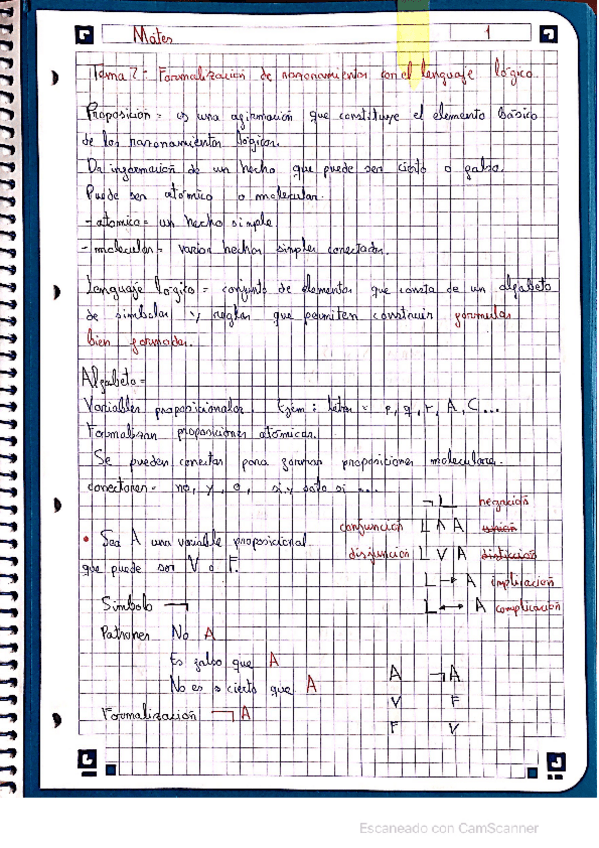 Mates 1
Tema 2 - Formalización de razonamientos con el lenguaje lógico.
Proposición = es una afirmación que constituye el elemento básico
de los razonamientos lógicos.
Da información de un hecho que puede ser cierto o falso.
Puede ser atómico o molecular.
- atomico = un hecho simple.
- molecular = varios hechos simples conectados.
Lenguaje lógico = conjunto de elementos que consta de un alfabeto
de simbolos y reglas que permiten construir formulas
bien formadas.
Alfabeto =
Variables proposicionales. Ejem: letras = p, q, r, A, C...
Formalizan proposiciones atómicas.
Se pueden conectar para formar proposiciones moleculares.
conectores - no, y, o, si y solo si ...
¬ L negación
conjunción L ∧ A unión
disjunción L ∨ A
L → A implicación
L ↔ A complicación
• Sea A una variable proposicional.
que puede ser V o F.
Símbolo ¬
Patrones No A
Es falso que A
No es cierto que A
Formalización ¬ A
A ¬A
V F
F V
Escaneado con CamScanner